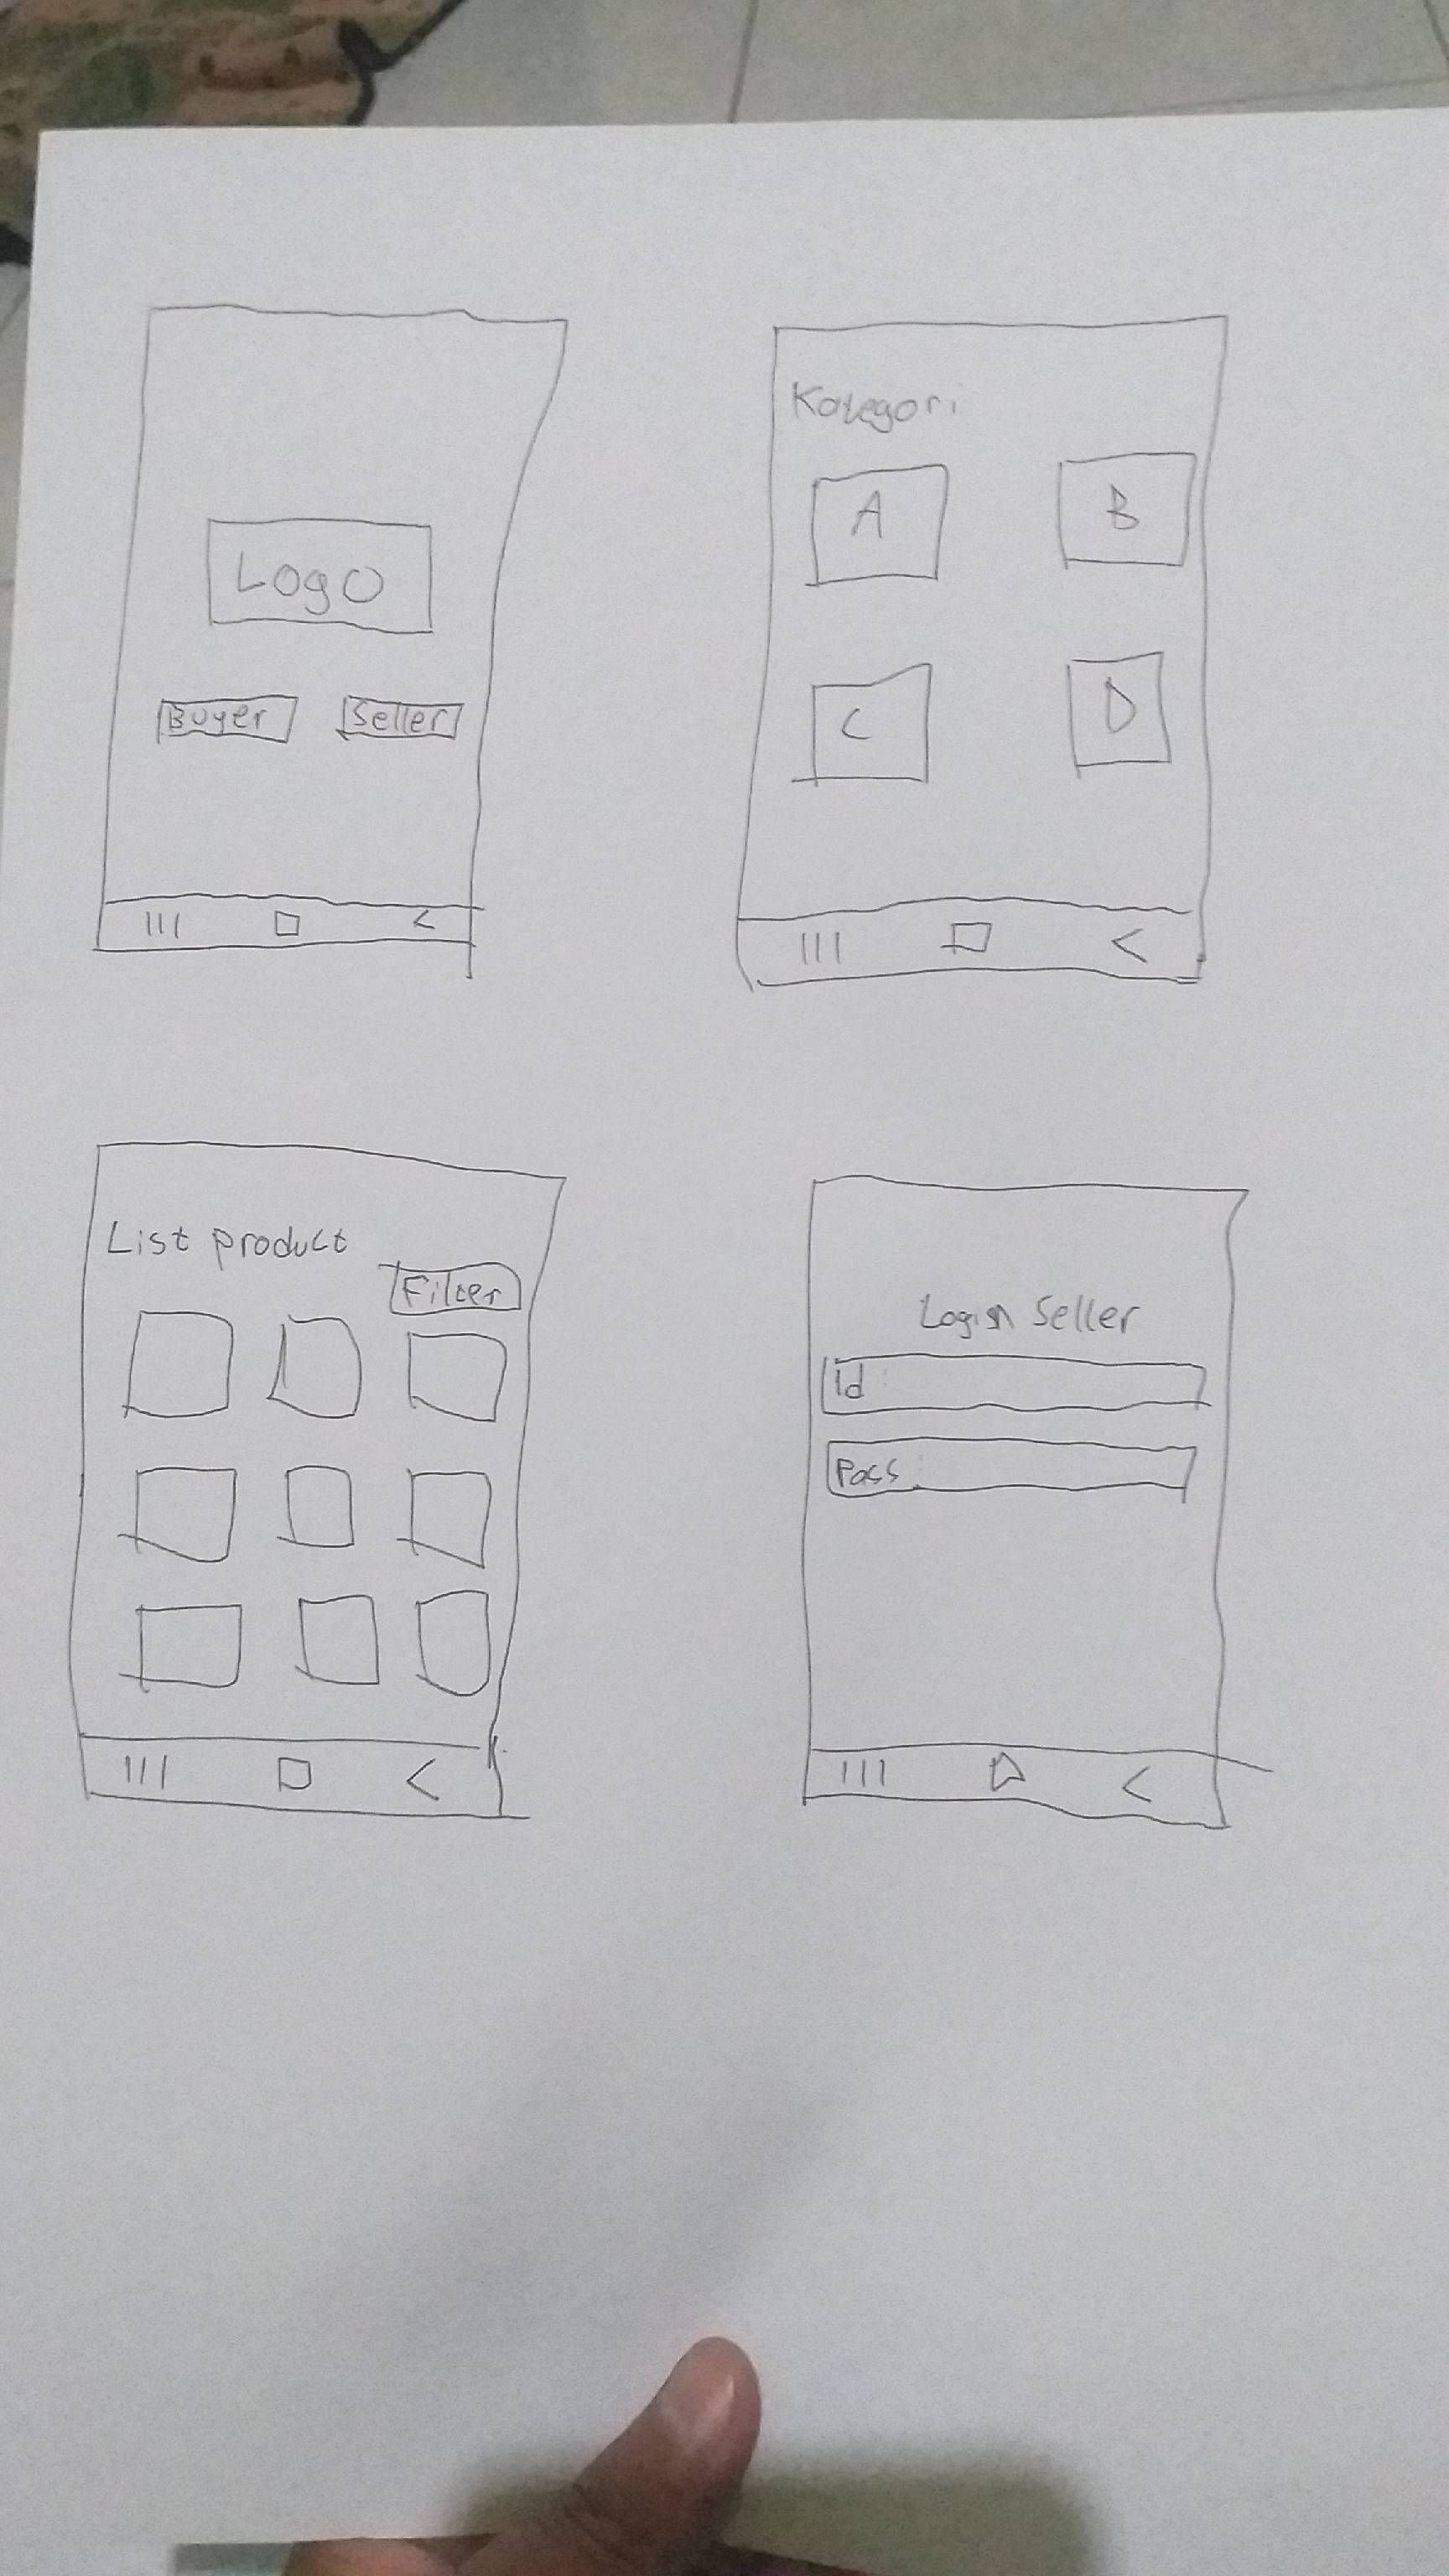 Logo
Buyer Seller
Kategori
A B
C D
List product
Filter
Login Seller
Id :
Pass :